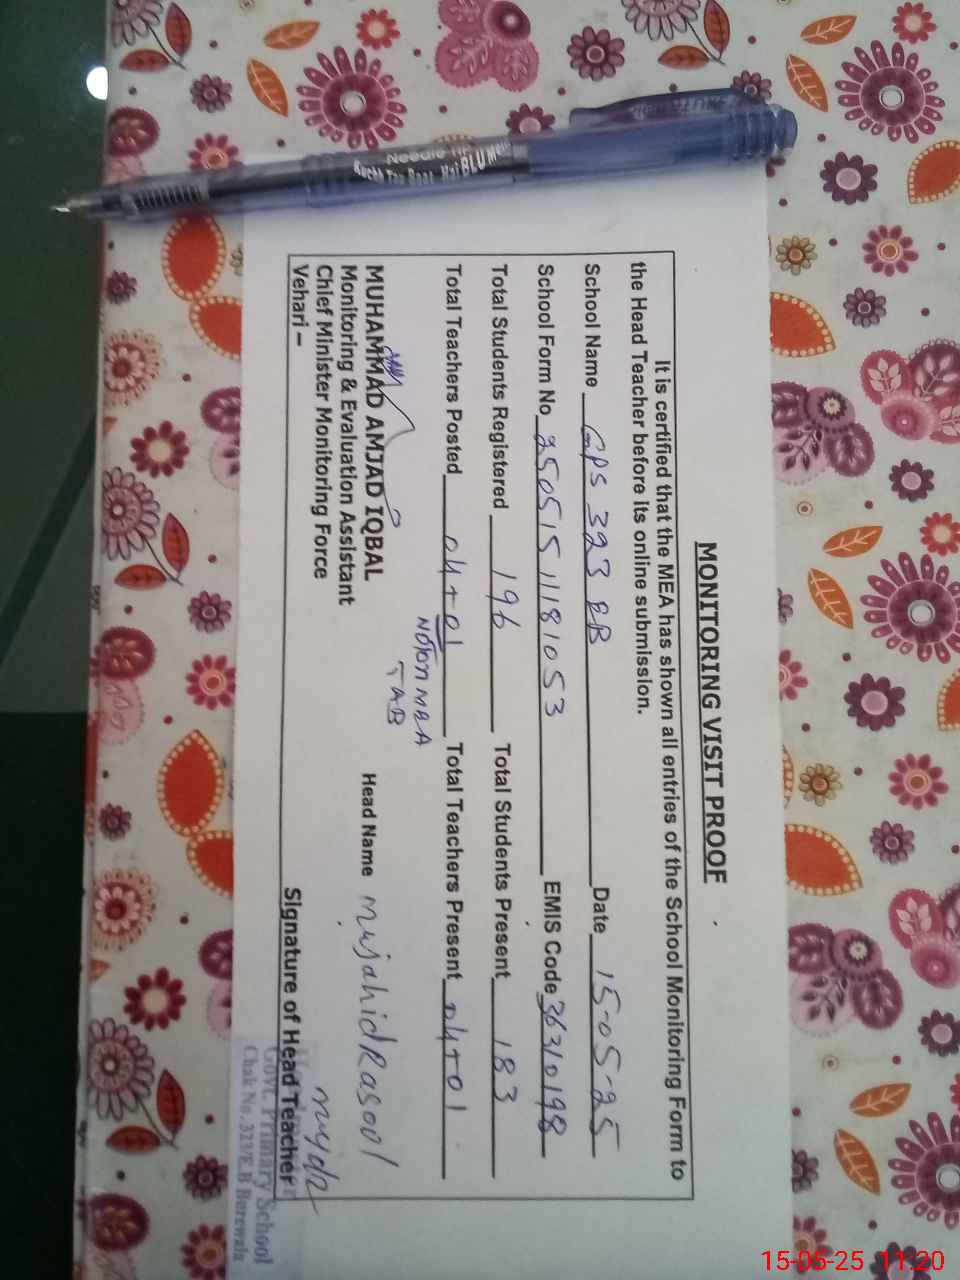 MONITORING VISIT PROOF
It is certified that the MEA has shown all entries of the School Monitoring Form to
the Head Teacher before its online submission.
School Name GPS 323 EB Date 15-05-25
School Form No 25051511181053 EMIS Code 36310198
Total Students Registered 196 Total Students Present 183
Total Teachers Posted 04+01 Total Teachers Present 04+01
NOT on MEA
TAB
MUHAMMAD AMJAD IQBAL
Monitoring & Evaluation Assistant
Chief Minister Monitoring Force
Vehari –
Head Name Mujahid Rasool
Signature of Head Teacher
Govt. Primary School
Chak No. 323/E.B Burewala
Needle Tip
Kuchh Tau Baat Hai BLUMEN
15-05-25 11:20